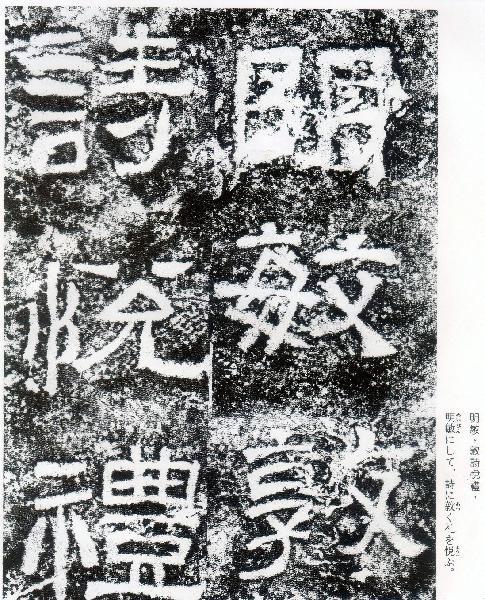 明敏敦
詩悦禮
明敏、敦詩悦禮
明敏にして、詩に敦く礼を悦ぶ。